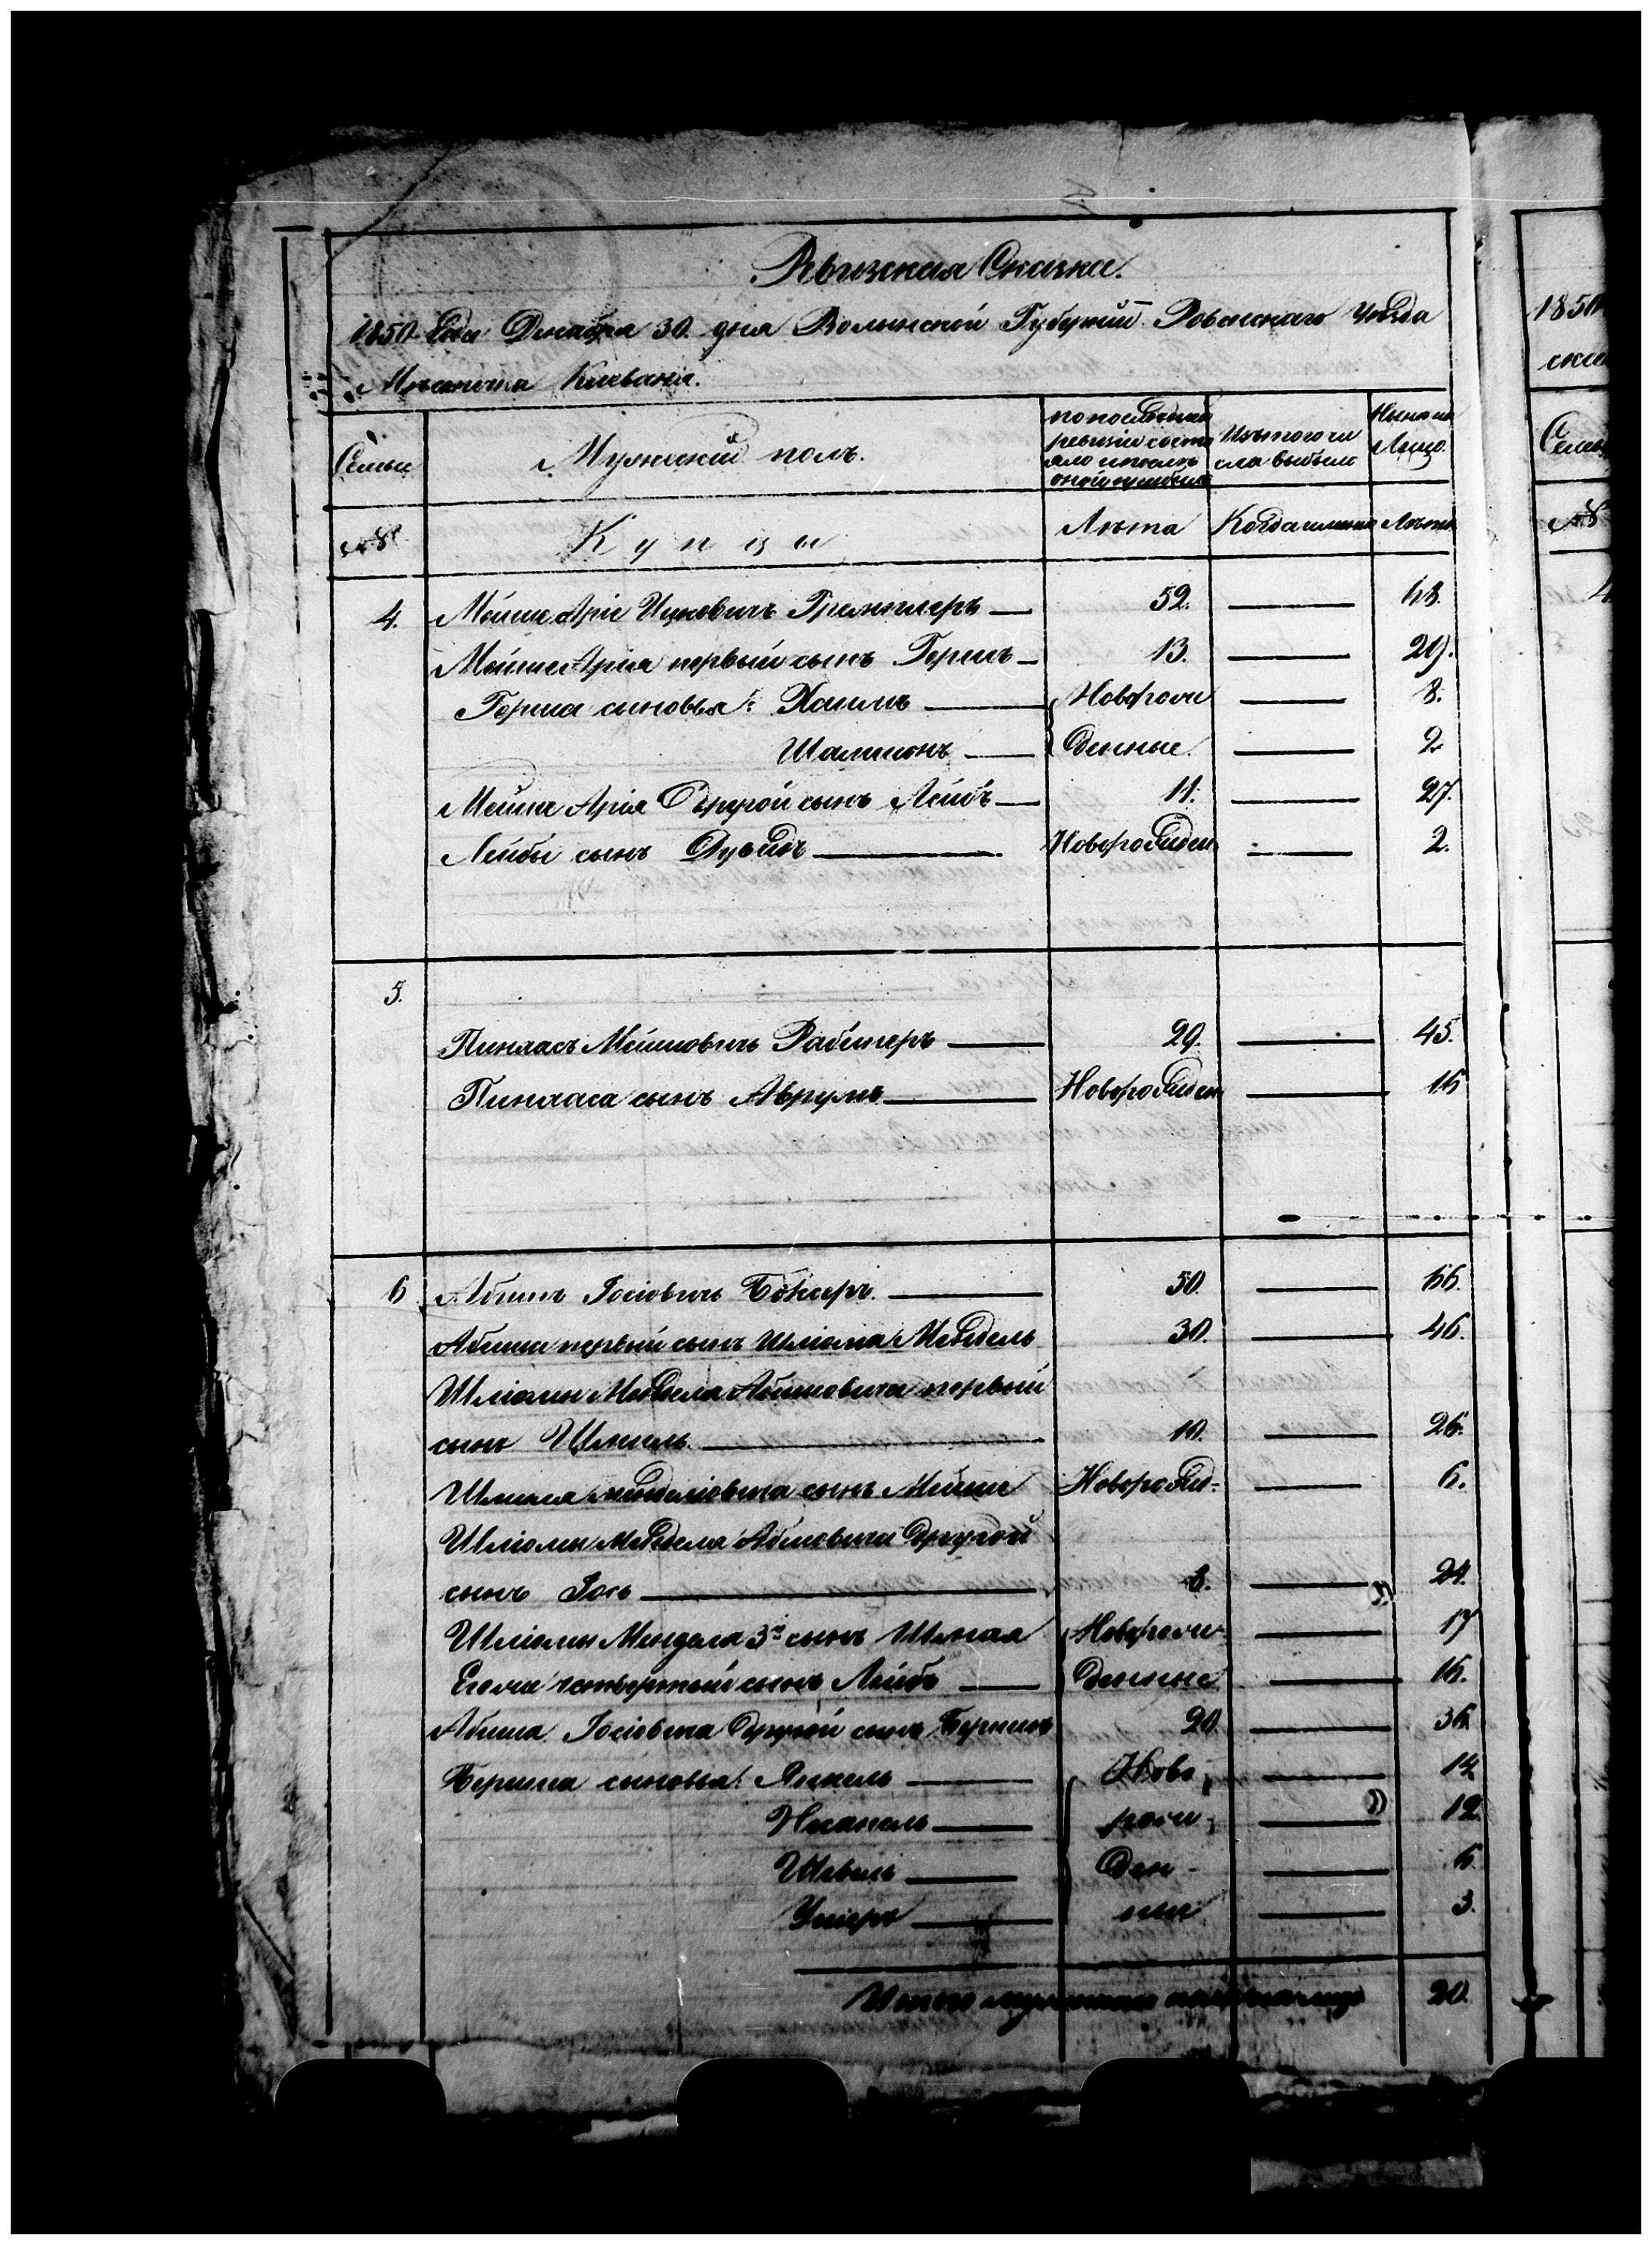 Ревизская Сказка.
1850 Года Декабря 30. дня Волынской Губерніи Ровенскаго Уѣзда
Мѣстечка Клеваня.
Семьи
Мужескій полъ.
По последней
ревизіи состо
яло и после
оной прибыло
Изътого чи
сла выбыло
Ныне на
Лицо.
№
Купцы
Лѣта
Когда именно
Лѣта
4. Мошко Аріе Ицковичъ 52. 68.
Мошко Арія первый сынъ Гершъ 13. 29.
Герша сыновья: Хаимъ Новорож 8.
Шамшонъ денные. 2
Мошко Арія Другой сынъ Лейбъ 11. 27.
Лейбы сынъ Дувидъ Новорожден 2.
5.
Пинхасъ Мошковичъ 29. 45.
Пинхаса сынъ Аврумъ Новорожден 16
6 Абишъ Іосіовичъ 50. 66.
Абиша первый сынъ Шліома Мендель 30. 46.
Шліомы Мендела Абишовича первый
сынъ Шмиль. 10. 26.
Шмиля Менделіовича сынъ Мошко Новорожд- 6.
Шліомы Мендела Абишовича Другой
сынъ Іось 8. 24.
Шліомы Мендела 3й сынъ Шмая Новорож- 17
Егоже четвертый сынъ Лейбъ денные 16.
Абиша Іосіовича Другой сынъ Беришъ 20. 36
Бериша сыновья: Янкель Ново 14
рож 12
Шевель ден- 6
Ушеръ ные 3.
Итого мужескаго пола на лицо 20.
1850
Семьи
№